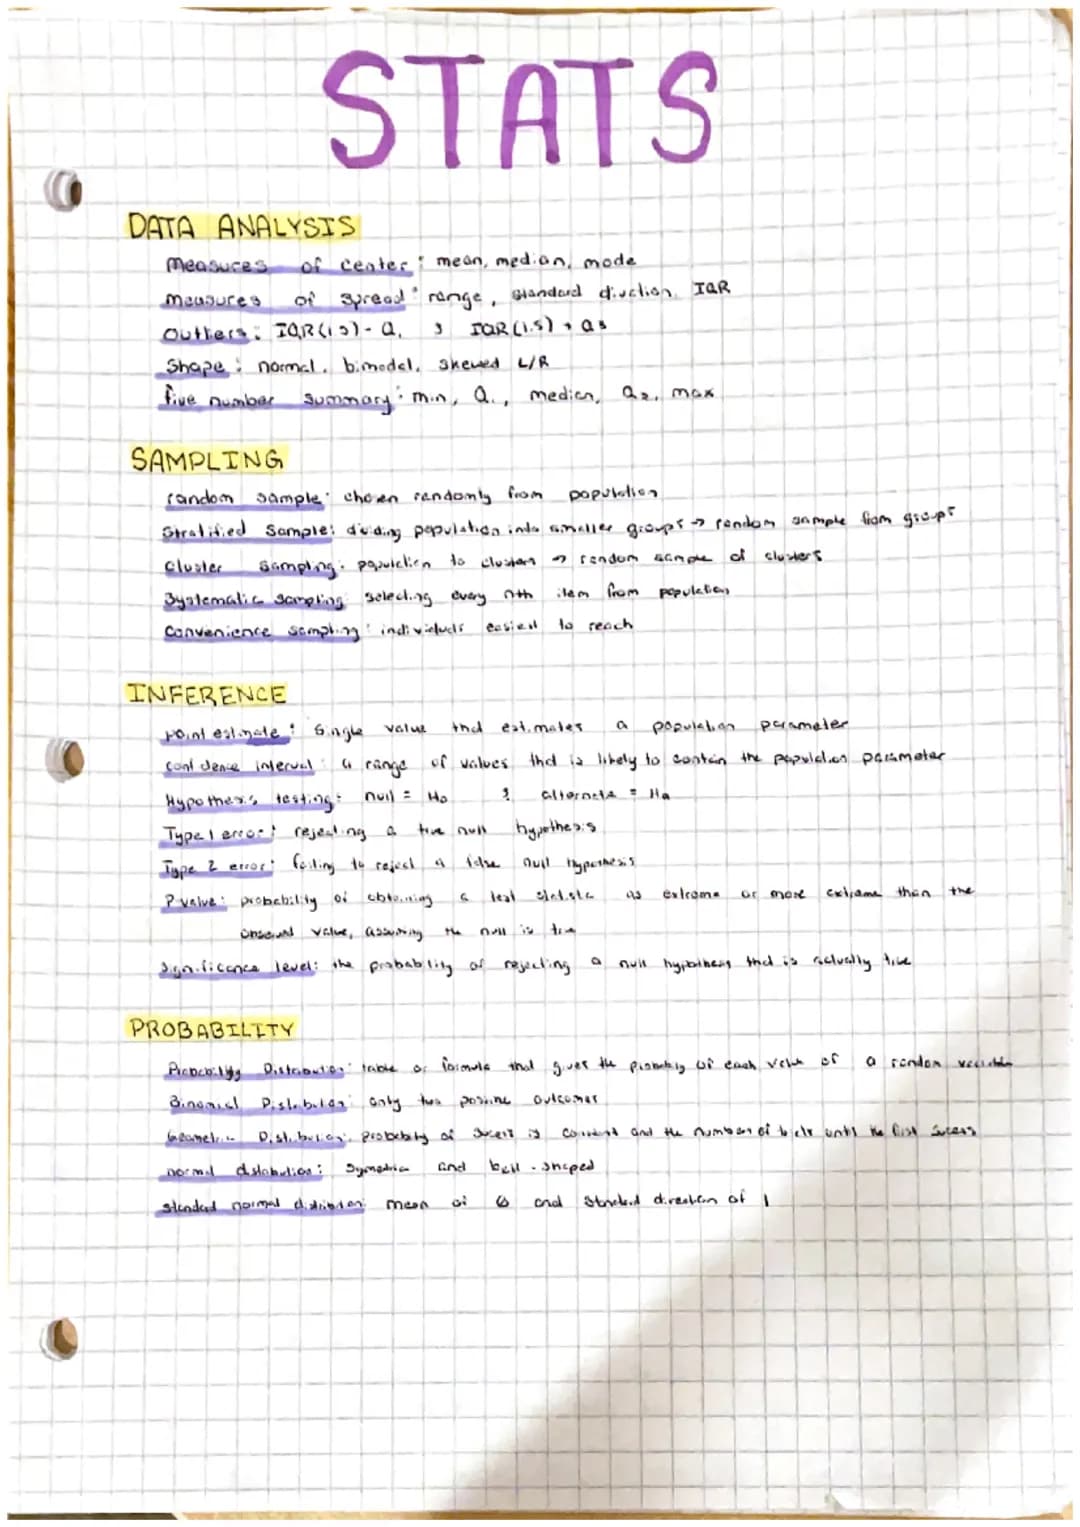 STATS
DATA ANALYSIS
Measures of center: mean, median, mode
measures of spread: range, standard diviction, IQR
Outliers: IQR(1.5) - Q1 & IQR(1.5) + Q3
Shape: normal, bimodel, skewed L/R
five number summary: min, Q1, median, Q3, max
SAMPLING
random sample: chosen randomly from population
Stratified Sample: dividing population into smaller groups → random sample from groups
Cluster sampling: population to clusters → random sample of clusters
Systematic sampling: selecting every nth item from population
Convenience sampling: individuals easiest to reach
INFERENCE
point estimate: single value that estimates a population parameter
confidence interval: a range of values that is likely to contain the population parameter
Hypothesis testing: null = Ho & alternate = Ha
Type 1 error: rejecting a true null hypothesis
Type 2 error: failing to reject a false null hypothesis
P-value: probability of obtaining a test statistic as extreme or more extreme than the
observed value, assuming the null is true
Significance level: the probability of rejecting a null hypothesis that is actually true
PROBABILITY
Probability Distribution: table or formula that gives the probability of each value of a random variable
Binomial Distribution: only two possible outcomes
Geometric Distribution: probability of success is constant and the number of trials until the first success
normal distribution: symmetric and bell-shaped
standard normal distribution: mean of 0 and standard direction of 1